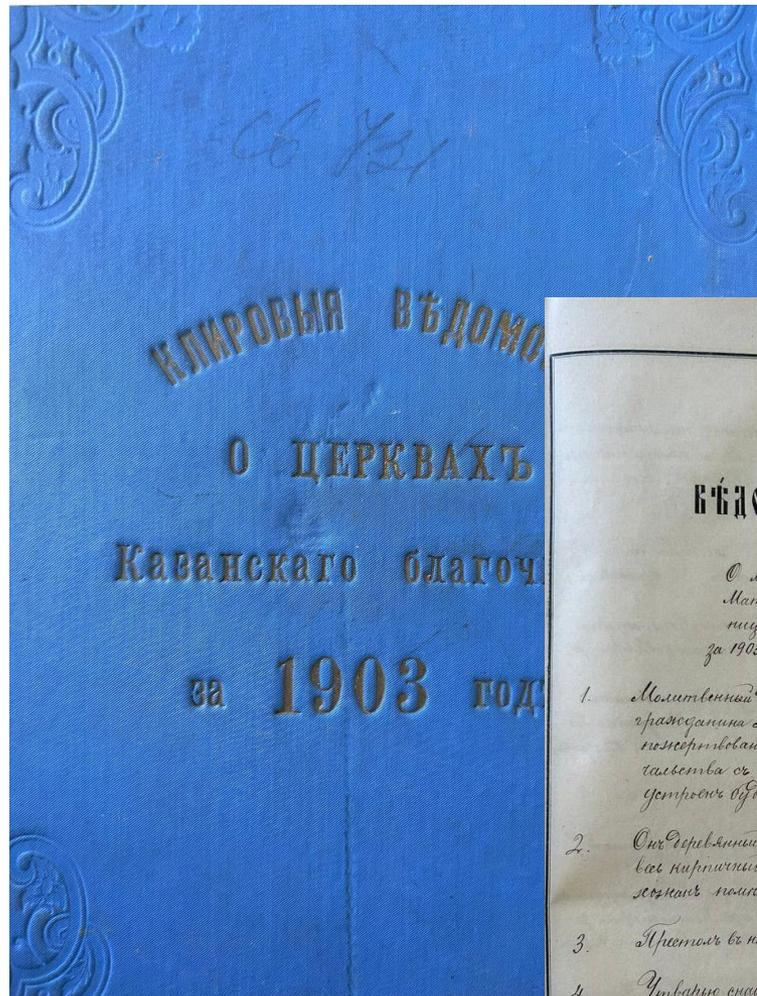 КЛИРОВЫЯ ВѢДОМО
О ЦЕРКВАХЪ
Казанскаго благоч
за 1903 год
ВѢДО
О
за 190
1. Молитвенный
гражданина
пожертвован
чальства съ
устроенъ
2. Онъ деревянный
весь кирпичный
3. Престолъ въ н
4. Утварью снаб